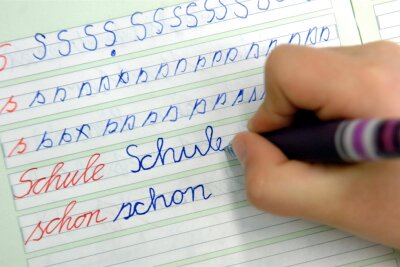 S S S S S S S S S S S S
s s s s s s s s s s s s s s s s
s s s s s s s s s s s s
Schule Schule
schon schon